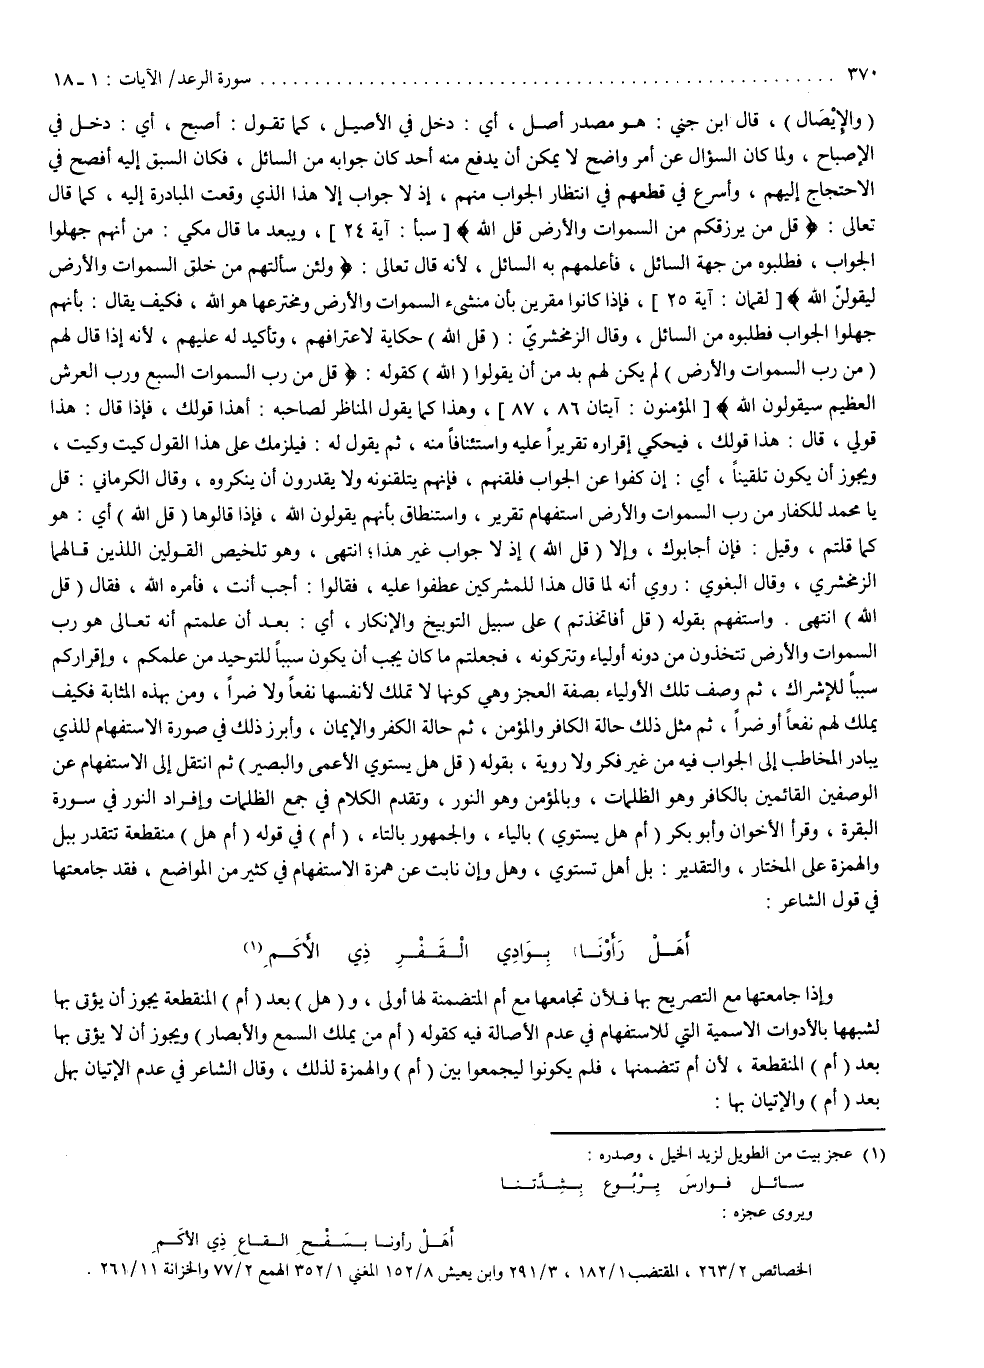 ٣٧٠ ........ سورة الرعد/ الآيات : ١ ـ ١٨
( والإِيْصَال ) ، قال ابن جني : هـو مصدر أصل ، أي : دخل في الأصيل ، كما تقول : أصبح ، أي : دخل في
الإصباح ، ولما كان السؤال عن أمر واضح لا يمكن أن يدفع منه أحد كان جوابه من السائل ، فكان السبق إليه أفصح في
الاحتجاج إليهم ، وأسرع في قطعهم في انتظار الجواب منهم ، إذ لا جواب إلا هذا الذي وقعت المبادرة إليه ، كما قال
تعالى : ﴿ قل من يرزقكم من السموات والأرض قل الله ﴾ [ سبأ : آية ٢٤ ] ، ويبعد ما قال مكي : من أنهم جهلوا
الجواب ، فطلبوه من جهة السائل ، فأعلمهم به السائل ، لأنه قال تعالى : ﴿ ولئن سألتهم من خلق السموات والأرض
ليقولنّ الله ﴾ [ لقمان : آية ٢٥ ] ، فإذا كانوا مقرين بأن منشىء السموات والأرض ومخترعها هو الله ، فكيف يقال : بأنهم
جهلوا الجواب فطلبوه من السائل ، وقال الزمخشريّ : ( قل الله ) حكاية لاعترافهم ، وتأكيد له عليهم ، لأنه إذا قال لهم
( من رب السموات والأرض ) لم يكن لهم بد من أن يقولوا ( الله ) كقوله : ﴿ قل من رب السموات السبع ورب العرش
العظيم سيقولون الله ﴾ [ المؤمنون : آيتان ٨٦ ، ٨٧ ] ، وهذا كما يقول المناظر لصاحبه : أهذا قولك ، فإذا قال : هذا
قولي ، قال : هذا قولك ، فيحكي إقراره تقريراً عليه واستئنافاً منه ، ثم يقول له : فيلزمك على هذا القول كيت وكيت ،
ويجوز أن يكون تلقيناً ، أي : إن كفوا عن الجواب فلقنهم ، فإنهم يتلقنونه ولا يقدرون أن ينكروه ، وقال الكرماني : قل
يا محمد للكفار من رب السموات والأرض استفهام تقرير ، واستنطاق بأنهم يقولون الله ، فإذا قالوها ( قل الله ) أي : هو
كما قلتم ، وقيل : فإن أجابوك ، وإلا ( قل الله ) إذ لا جواب غير هذا؛ انتهى ، وهو تلخيص القـولين اللذين قـالهما
الزمخشري ، وقال البغوي : روي أنه لما قال هذا للمشركين عطفوا عليه ، فقالوا : أجب أنت ، فأمره الله ، فقال ( قل
الله ) انتهى . واستفهم بقوله ( قل أفاتخذتم ) على سبيل التوبيخ والإنكار ، أي : بعـد أن علمتم أنه تعـالى هو رب
السموات والأرض تتخذون من دونه أولياء وتتركونه ، فجعلتم ما كان يجب أن يكون سبباً للتوحيد من علمكم ، وإقراركم
سبباً للإشراك ، ثم وصف تلك الأولياء بصفة العجز وهي كونها لا تملك لأنفسها نفعاً ولا ضراً ، ومن بهذه المثابة فكيف
يملك لهم نفعاً أو ضراً ، ثم مثل ذلك حالة الكافر والمؤمن ، ثم حالة الكفر والإيمان ، وأبرز ذلك في صورة الاستفهام للذي
يبادر المخاطب إلى الجواب فيه من غير فكر ولا روية ، بقوله ( قل هل يستوي الأعمى والبصير ) ثم انتقل إلى الاستفهام عن
الوصفين القائمين بالكافر وهو الظلمات ، وبالمؤمن وهو النور ، وتقدم الكلام في جمع الظلمات وإفـراد النور في سـورة
البقرة ، وقرأ الأخوان وأبو بكر ( أم هل يستوي ) بالياء ، والجمهور بالتاء ، ( أم ) في قوله ( أم هل ) منقطعة تتقدر ببل
والهمزة على المختار ، والتقدير : بل أهل تستوي ، وهل وإن نابت عن همزة الاستفهام في كثير من المواضع ، فقد جامعتها
في قول الشاعر :
أَهَـلْ رَأَوْنَـا بِـوَادِي الْـقَـفْـرِ ذِي الأَكَـمِ(١)
وإذا جامعتها مع التصريح بها فـلأن تجامعها مع أم المتضمنة لها أولى ، و( هل ) بعد ( أم ) المنقطعة يجوز أن يؤتى بها
لشبهها بالأدوات الاسمية التي للاستفهام في عدم الأصالة فيه كقوله ( أم من يملك السمع والأبصار ) ويجوز أن لا يؤتى بها
بعد ( أم ) المنقطعة ، لأن أم تتضمنها ، فلم يكونوا ليجمعوا بين ( أم ) والهمزة لذلك ، وقال الشاعر في عدم الإتيان بهل
بعد ( أم ) والإتيان بها :
(١) عجز بيت من الطويل لزيد الخيل ، وصدره :
سـائـل فـوارسَ يـرْبُـوع بِـشِـدَّتـنـا
ويروى عجزه :
أَهَـلْ رأونـا بـسَـفْـحِ الـقـاعِ ذِي الأكَـمِ
الخصائص ٢٦٣/٢ ، المقتضب١٨٢/١ ، ٢٩١/٣ وابن يعيش ١٥٢/٨ المغني ٣٥٢/١ الهمع ٧٧/٢ والخزانة ٢٦١/١١ .